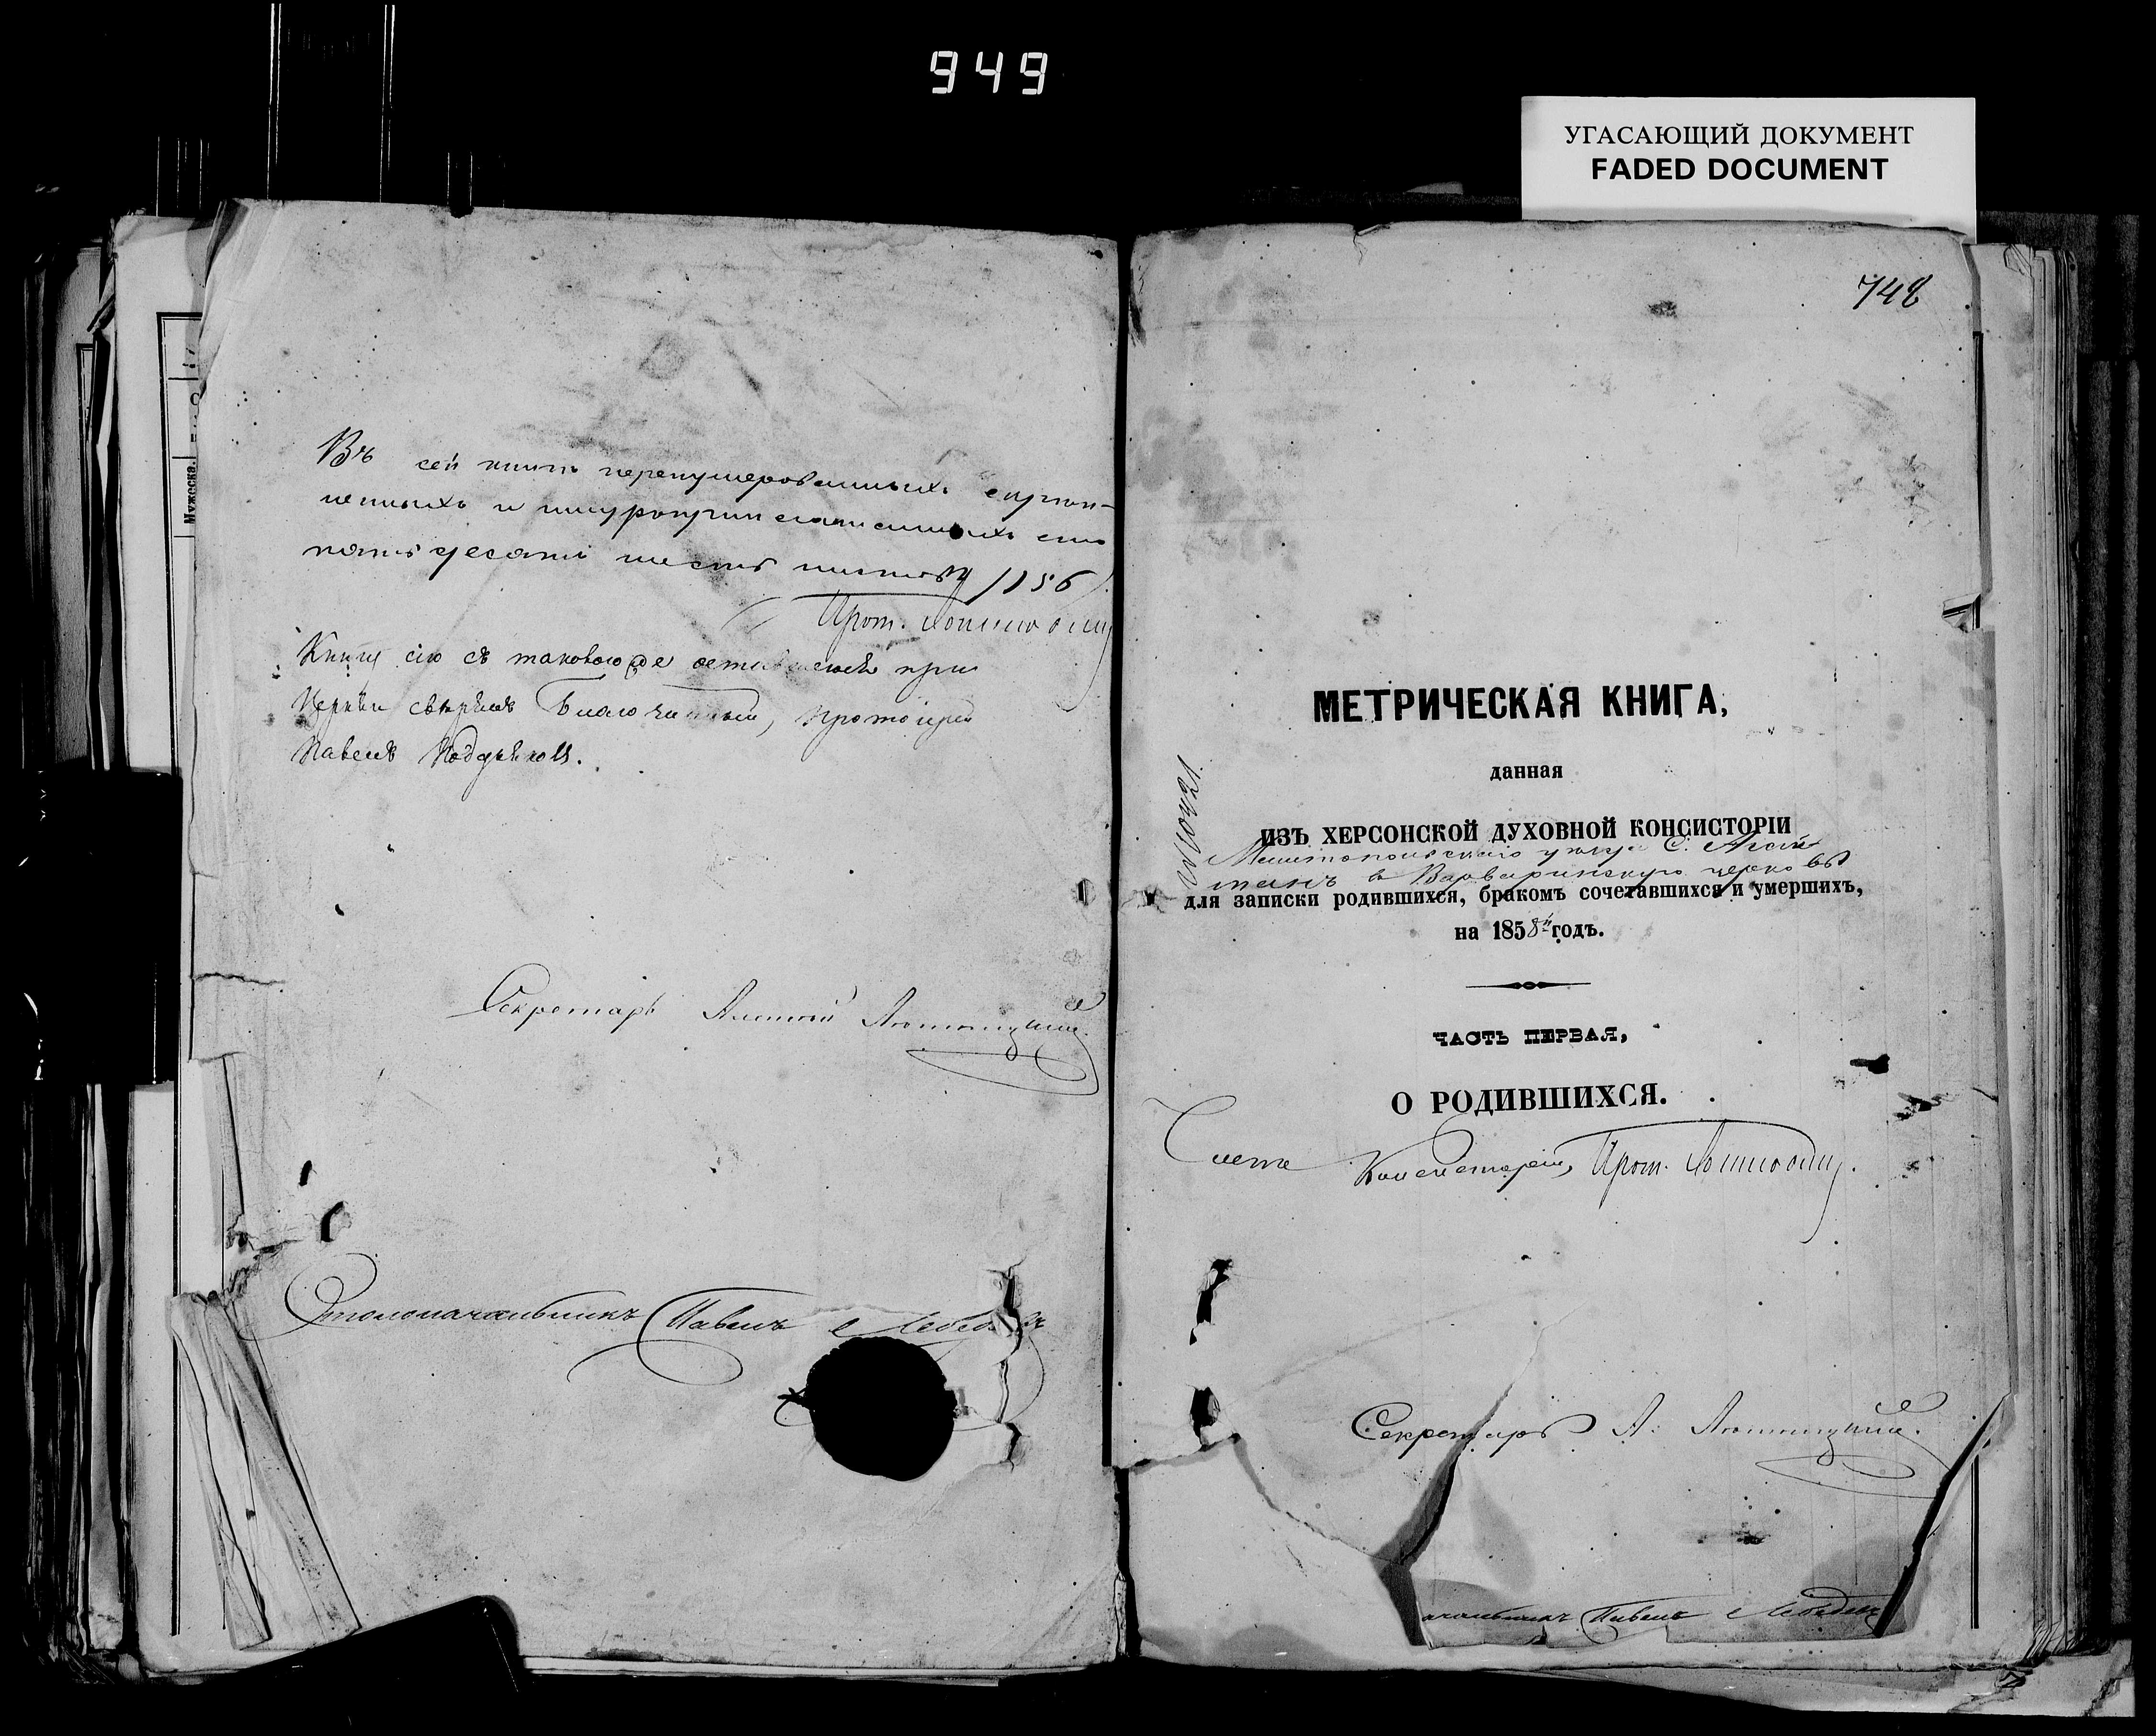 949
УГАСАЮЩИЙ ДОКУМЕНТ
FADED DOCUMENT
Мужеска.
Въ сей книгѣ перенумерованныхъ скрѣп-
ленныхъ и шнуроприпечатанныхъ сто
пятьдесятъ шесть листовъ /156/.
Прот.
Книгу сію съ таковою же оставшеюся при
Церкви свѣрялъ Благочинный, протоіерей
Павелъ
Секретарь
Столоначальникъ Павелъ Лебедевъ
748
№10421.
МЕТРИЧЕСКАЯ КНИГА,
данная
ИЗЪ ХЕРСОНСКОЙ ДУХОВНОЙ КОНСИСТОРІИ
Мелитопольскаго уѣзда С. Агай-
манъ в Варваринскую церковь
для записки родившихся, бракомъ сочетавшихся и умершихъ,
на 1858й годъ.
ЧАСТЬ ПЕРВАЯ,
О РОДИВШИХСЯ.
Членъ Консисторіи, Прот.
Секретарь А.
ачальникъ Павелъ Лебедевъ